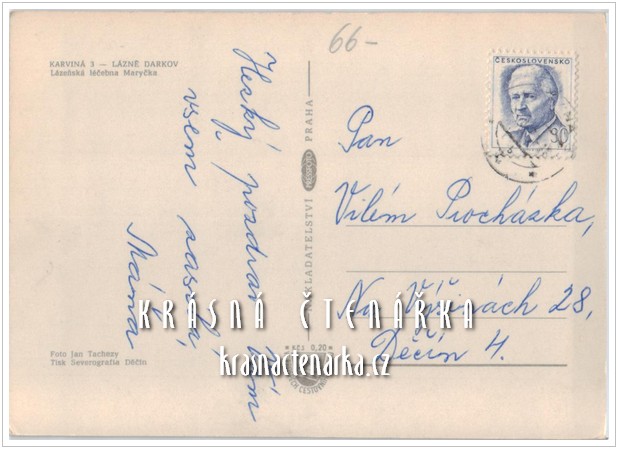 KARVINÁ 3 — LÁZNĚ DARKOV
Lázeňská léčebna Maryčka
66-
ČESKOSLOVENSKO
Hezký pozdrav
všem
Máma
NAKLADATELSTVÍ PRESSFOTO PRAHA
Kčs 0,20
Pan
Vilém Procházka,
Na Výšinách 28,
Děčín 4.
KRÁSNÁ ČTENÁŘKA
krasnactenarka.cz
Foto Jan Tachezy
Tisk Severografia Děčín